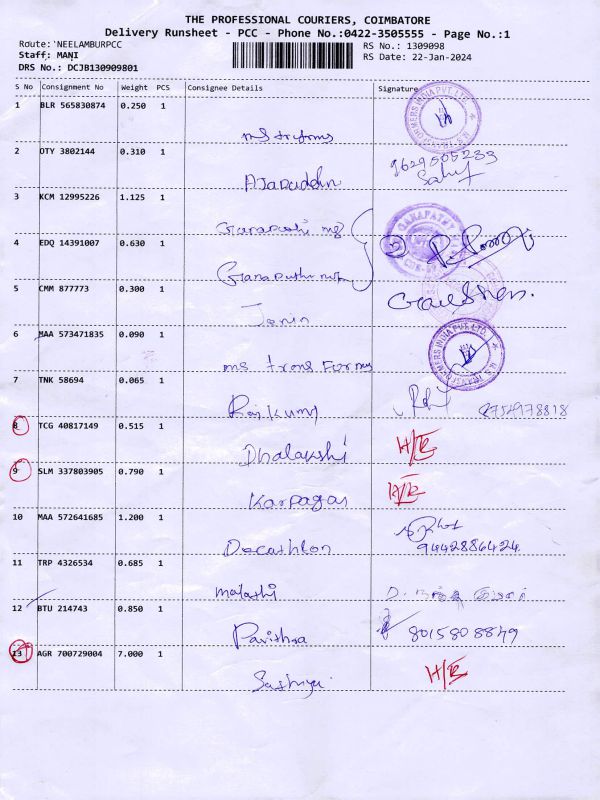 THE PROFESSIONAL COURIERS, COIMBATORE
Delivery Runsheet - PCC - Phone No.:0422-3505555 - Page No.:1
Route: NEELAMBURPCC
RS No.: 1309098
Staff: MANI
RS Date: 22-Jan-2024
DRS No.: DCJB130909801
S No Consignment No Weight PCS Consignee Details Signature
1 BLR 565830874 0.250 1
2 OTY 3802144 0.310 1 9629505233
3 KCM 12995226 1.125 1 GANAPATHY
4 EDQ 14391007 0.630 1
5 CMM 877773 0.300 1
Jenin
6 MAA 573471835 0.090 1
ms trans Forms
7 TNK 58694 0.065 1
Rajkumar 8754978818
8 TCG 40817149 0.515 1 H/R
9 SLM 337803905 0.790 1 H/R
Karpagar
10 MAA 572641685 1.200 1
Decathlon 9442886424
11 TRP 4326534 0.685 1
malathi
12 BTU 214743 0.850 1
Pavithra 8015808849
13 AGR 700729004 7.000 1 H/R